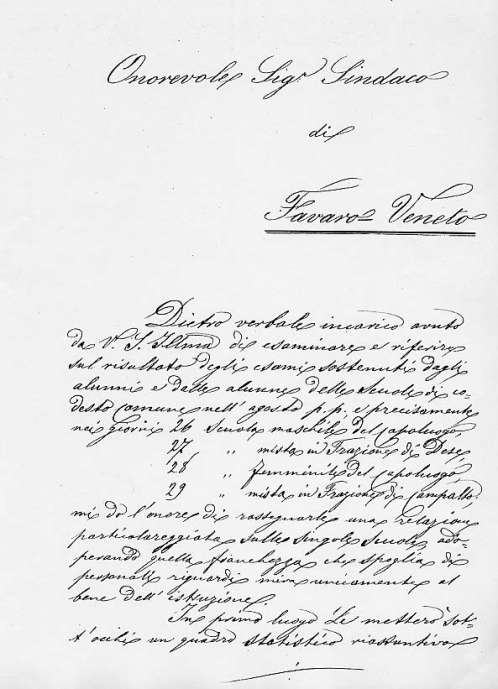 Onorevole Sigr Sindaco
di
Favaro Veneto
Dietro verbale incarico avuto
da V. S. Illma di esaminare e riferire
sul risultato degli esami sostenuti dagli
alunni e dalle alunne delle Scuole di co-
desto Comune nell' agosto p. p. e precisamente
nei giorni 26 Scuola maschile del Capoluogo,
27 „ mista in Frazione di Dese,
28 „ femminile del Capoluogo,
29 „ mista in Frazione di Campalto,
mi do l'onore di rassegnarle una relazione
particolareggiata sulle singole Scuole, ado-
perando quella franchezza che spoglia di
personali riguardi mira unicamente al
bene dell' istruzione.
In primo luogo Le metterò sot-
t'occhi un quadro statistico riassuntivo